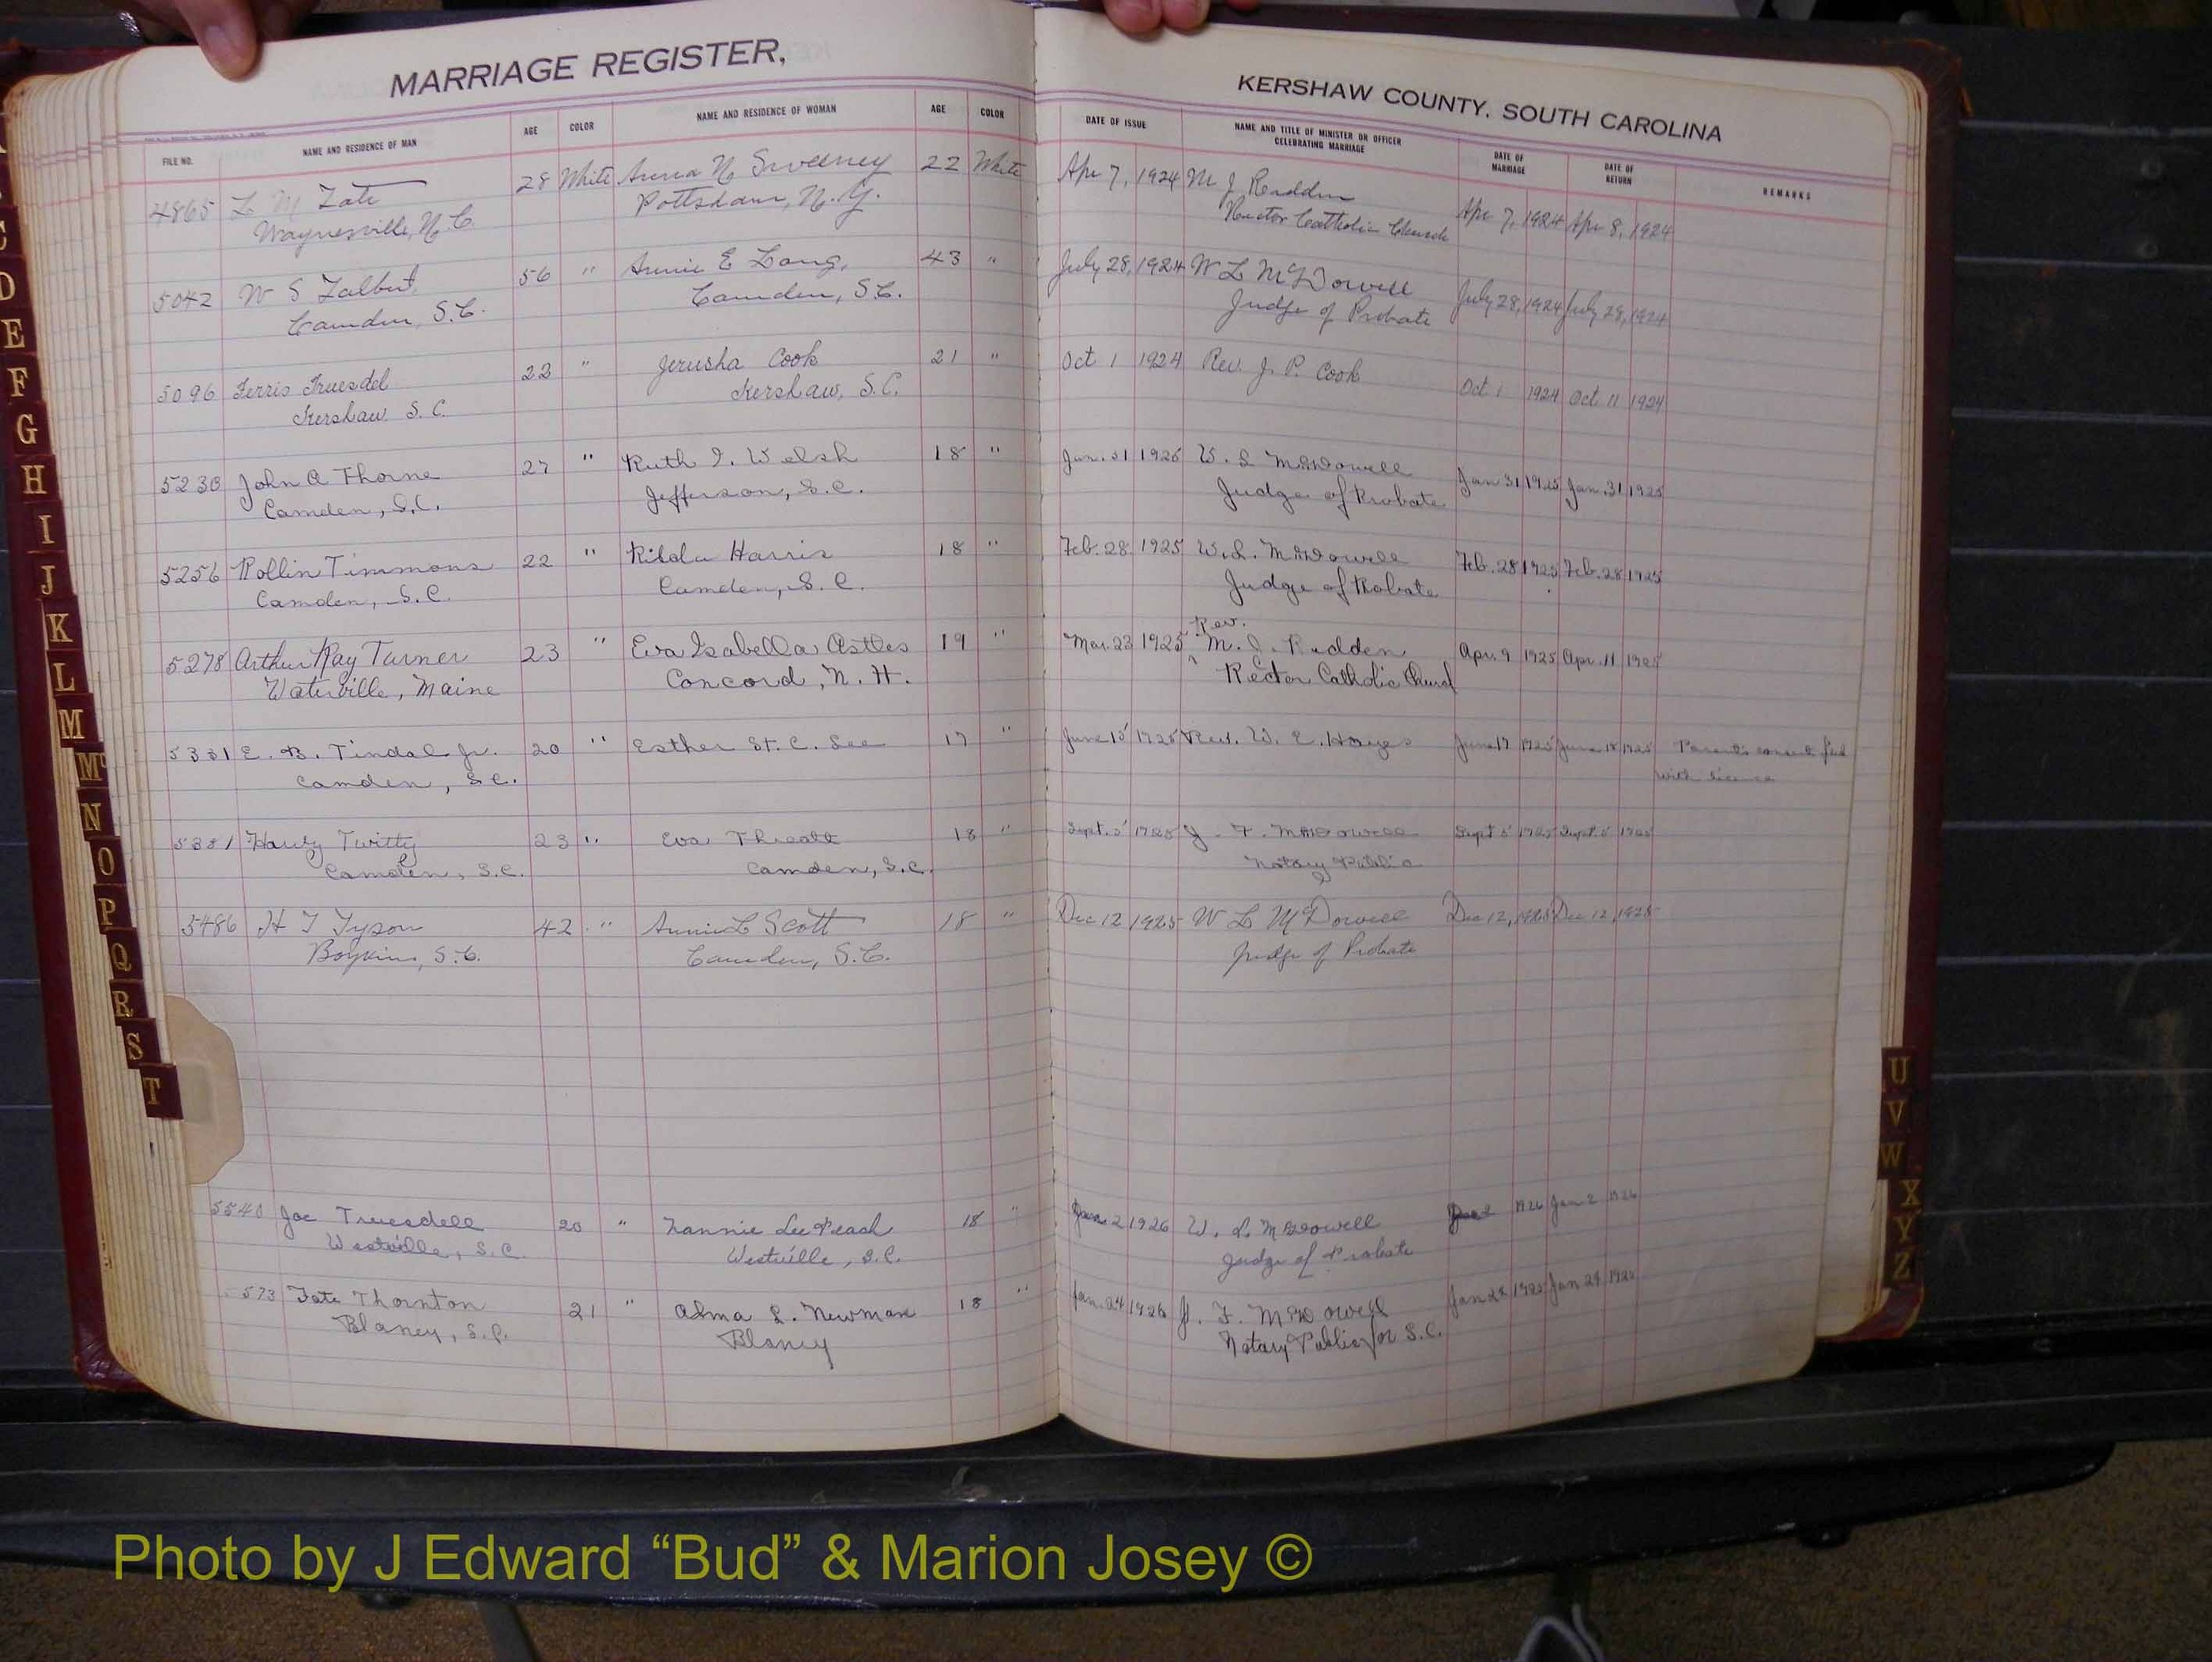 MARRIAGE REGISTER,
KERSHAW COUNTY, SOUTH CAROLINA
FILE NO. NAME AND RESIDENCE OF MAN AGE COLOR NAME AND RESIDENCE OF WOMAN AGE COLOR DATE OF ISSUE NAME AND TITLE OF MINISTER OR OFFICER CELEBRATING MARRIAGE DATE OF MARRIAGE DATE OF RETURN REMARKS
4865 L M Tate 28 White Anna N Sweeney 22 White Apr 7, 1924 M J Reddin Apr 7, 1924 Apr 8, 1924
Waynesville, N.C. Pottsdam, N.Y. Rector Catholic Church
5042 W S Talbert 56 " Annie E Long, 43 " July 28, 1924 W L McDowell July 28, 1924 July 28, 1924
Camden, S.C. Camden, S.C. Judge of Probate
5096 Ferris Truesdel 22 " Jerusha Cook 21 " Oct 1 1924 Rev. J. P. Cook Oct 1 1924 Oct 11 1924
Kershaw S. C. Kershaw, S.C.
5230 John A Thorne 27 " Ruth I. Welsh 18 " Jan. 31 1925 W. L McDowell Jan 31 1925 Jan. 31 1925
Camden, S.C. Jefferson, S.C. Judge of Probate
5256 Rollin Timmons 22 " Harris 18 " Feb. 28. 1925 W. L. McDowell Feb. 28 1925 Feb. 28 1925
Camden, S.C. Camden, S.C. Judge of Probate
5278 Arthur Ray Turner 23 " Eva Isabella Astles 19 " Mar. 23 1925 Rev. M. J. Redden Apr. 9 1925 Apr. 11 1925
Waterville, Maine Concord, N. H. Rector Catholic Church
5331 E. B. Tindal Jr. 20 " Esther St. C. Lee 17 " June 15 1925 Rev. W. E. June 17 1925 June 18 1925 Parents consent filed
Camden, S.C. with license
5381 Twitty 23 " Eva Threatt 18 " Sept. 5 1925 J. F. McDowell Sept 5 1925 Sept. 5 1925
Camden, S.C. Camden, S.C. Notary Public
5486 H T Tyson 42 " Annie L Scott 18 " Dec 12 1925 W L McDowell Dec 12, 1925 Dec 12, 1925
Boykin, S.C. Camden, S.C. Judge of Probate
5540 Joe Truesdell 20 " Nannie Lee Peach 18 " Jan 2 1926 W. L McDowell 1926 Jan 2 1926
Westville, S.C. Westville, S.C. Judge of Probate
573 Tate Thornton 21 " Alma L. Newman 18 " Jan. 24 1926 J. F. McDowell Jan 24 1925 Jan 24 1925
Blaney, S.C. Blaney Notary Public for S.C.
C
D
E
F
G
H
I
J
K
L
M
Mc
N
O
P
Q
R
S
T
U
V
W
X
Y
Z
Photo by J Edward “Bud” & Marion Josey ©